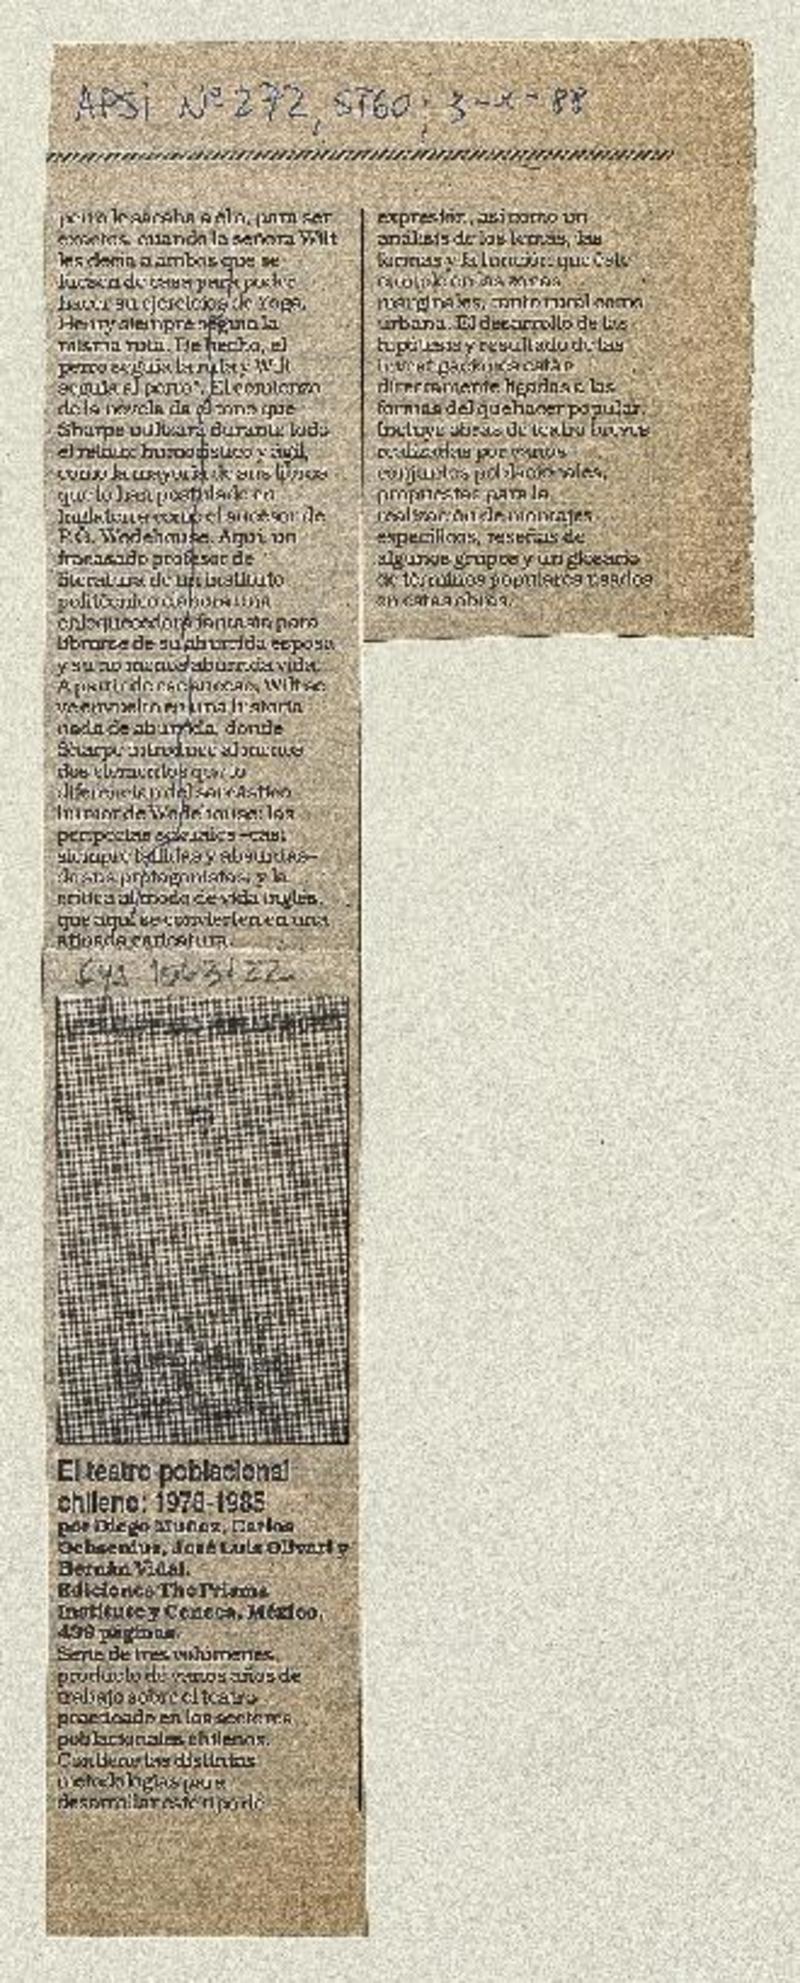 APSI Nº 272, STGO; 3-X-88
perro le sacaba a él o, para ser
exactos, cuando la señora Wilt
les decía a ambos que se
fuesen de casa para poder
hacer su ejercicios de Yoga,
Henry siempre seguía la
misma ruta. De hecho, el
perro seguía la ruta y Wilt
seguía al perro". El comienzo
de la novela da el tono que
Sharpe utilizará durante todo
el relato: humorístico y ágil,
como la mayoría de sus libros
que lo han postulado en
Inglaterra como el sucesor de
P.G. Wodehouse. Aquí, un
fracasado profesor de
literatura de un instituto
politécnico elabora una
enloquecedora fantasía para
librarse de su aburrida esposa
y su no menos aburrida vida.
A partir de ese Wilt se
ve envuelto en una historia
nada de aburrida, donde
Sharpe introduce al menos
dos elementos que lo
diferencian del sarcástico
humor de Wodehouse: las
peripecias sexuales –casi
siempre fallidas y absurdas–
de sus protagonistas, y la
crítica al modo de vida inglés,
que aquí se convierten en una
afilada caricatura.
El teatro poblacional
chileno: 1978-1985
por Diego Muñoz, Carlos
Ochsenius, José Luis Olivari y
Hernán Vidal.
Ediciones The Prisma
Institute y Ceneca, México,
439 páginas.
Serie de tres volúmenes,
producto de varios años de
trabajo sobre el teatro
practicado en los sectores
poblacionales chilenos.
Contiene las distintas
metodologías para
desarrollar este tipo de
expresión, así como un
análisis de los temas, las
formas y la función que éste
cumple en las zonas
marginales, tanto rural como
urbana. El desarrollo de las
hipótesis y resultado de las
investigaciones están
directamente ligadas a las
formas del quehacer popular.
Incluye obras de teatro breves
realizadas por varios
conjuntos poblacionales,
propuestas para la
realización de montajes
específicos, reseñas de
algunos grupos y un glosario
de términos populares usados
en estas obras.